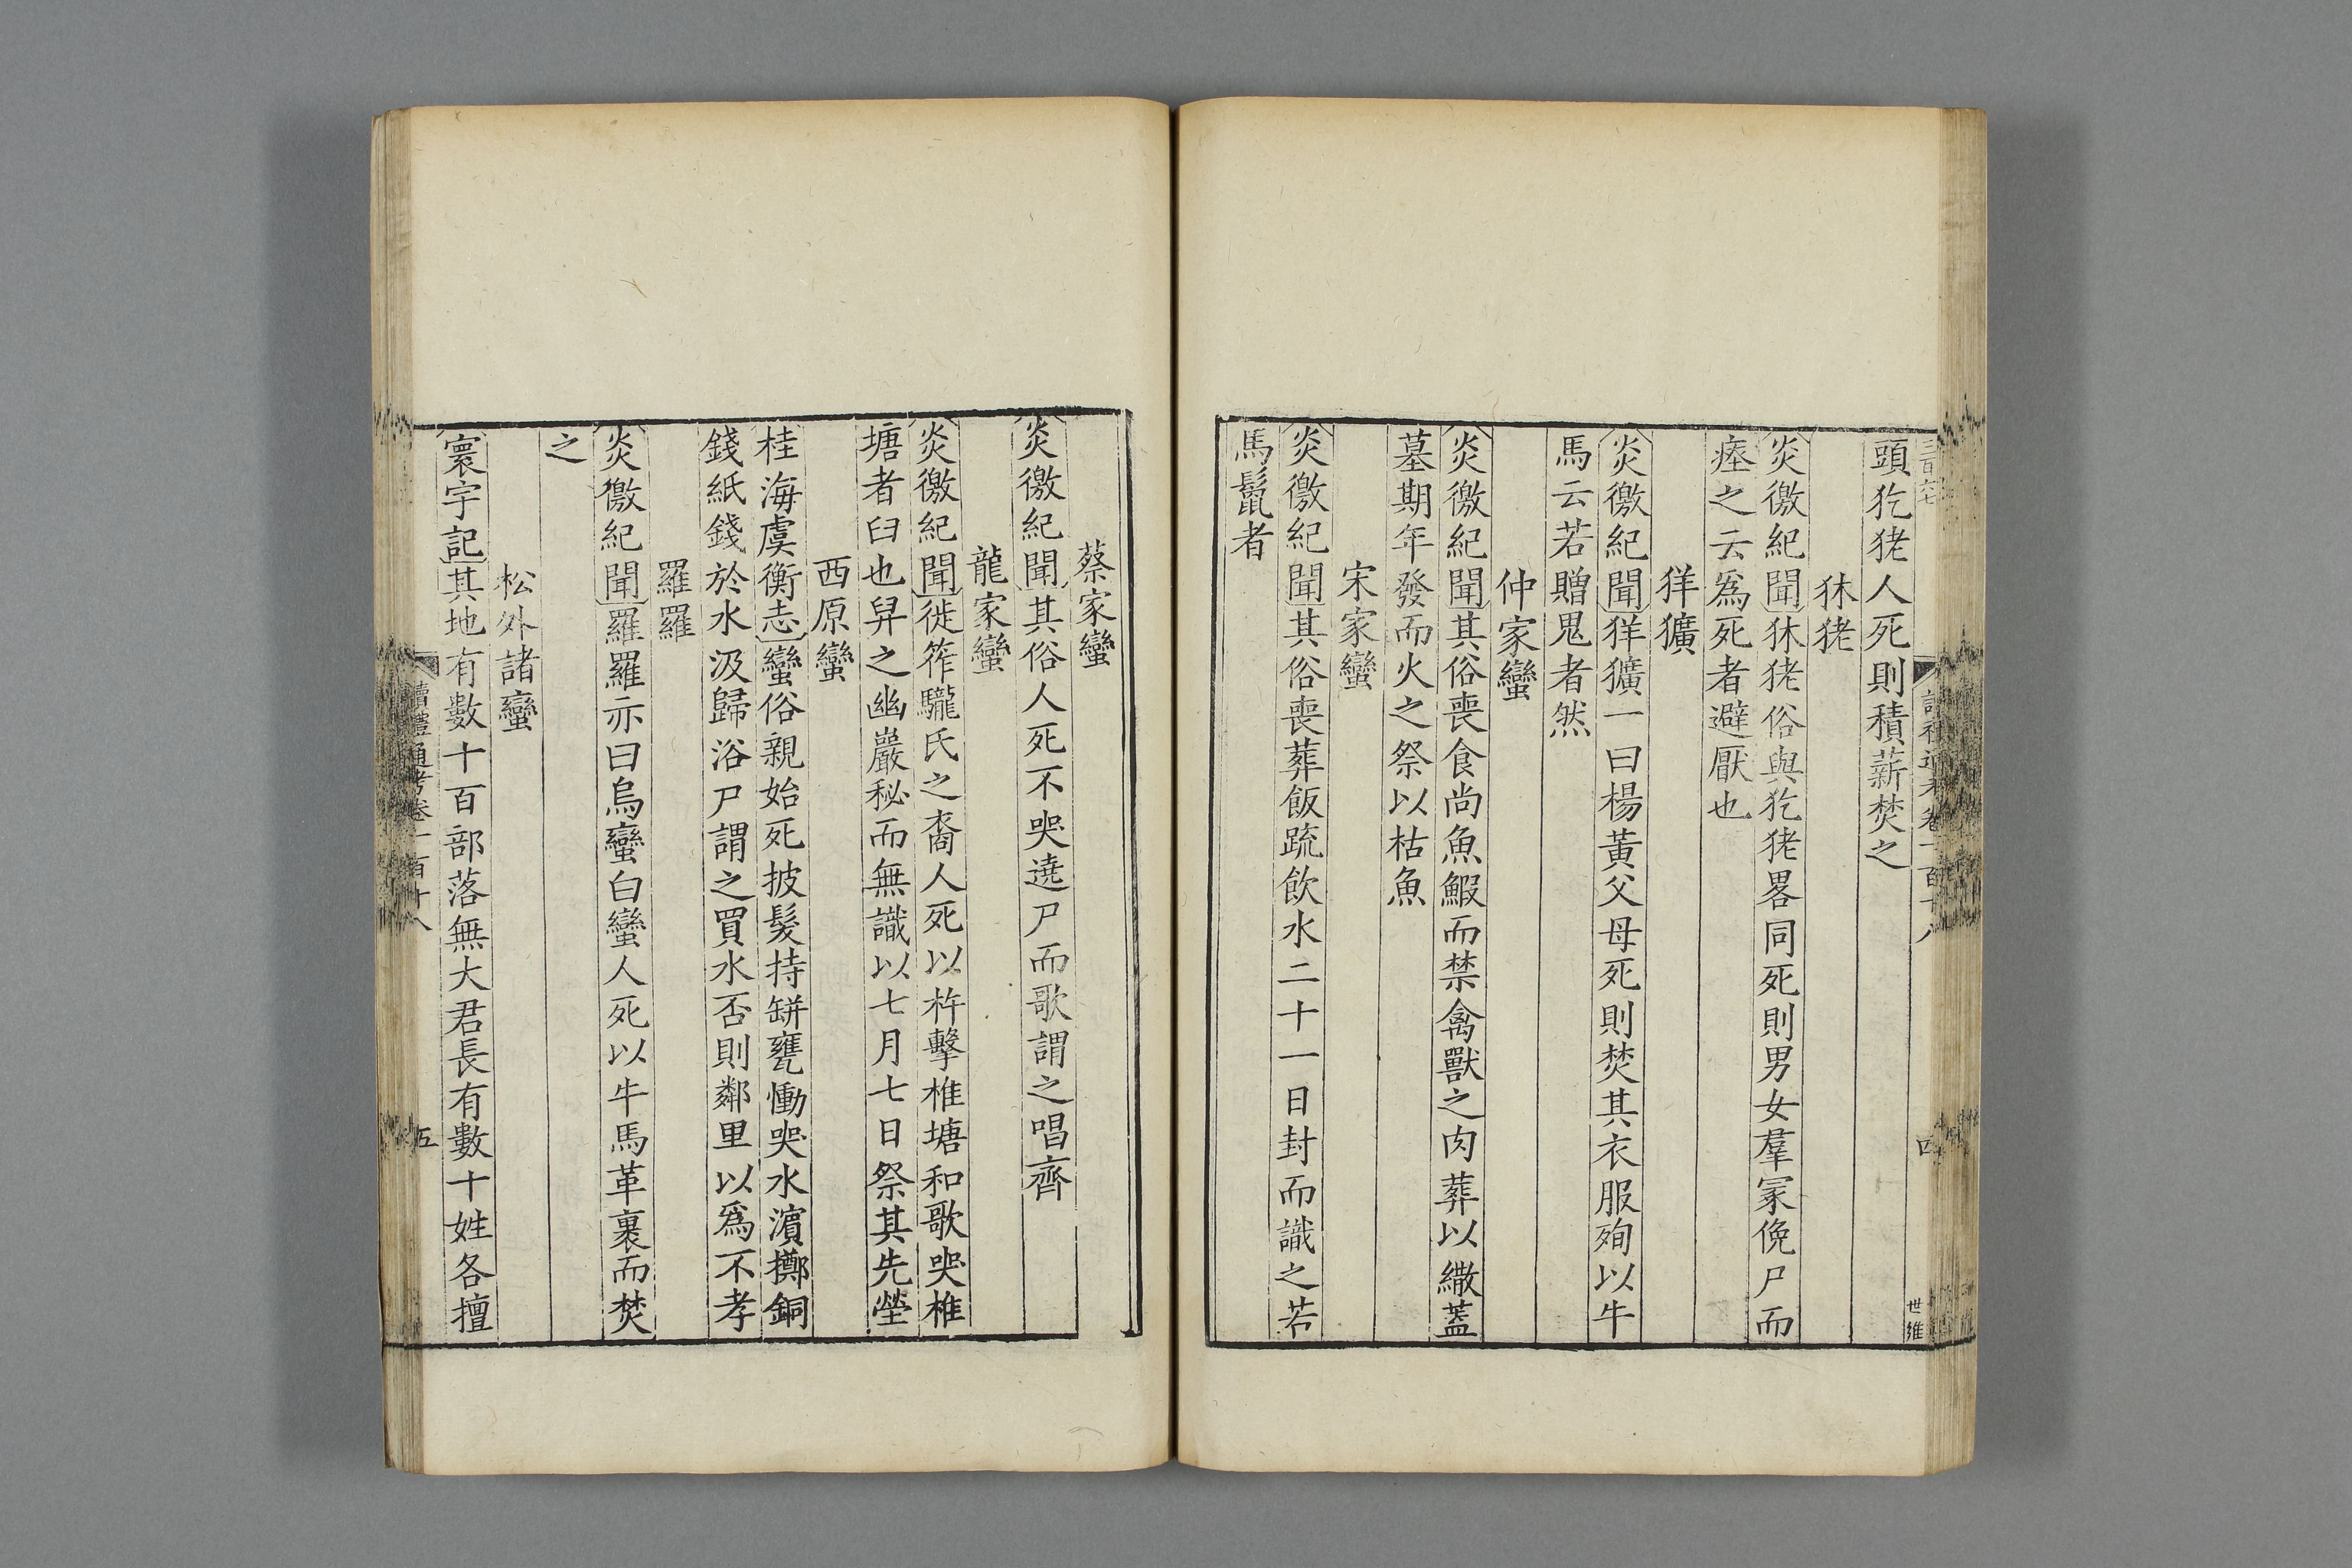 頭犵狫人死則積薪焚之
㹯狫
炎徼紀聞㹯狫俗與犵狫畧同死則男女羣冡俛尸而
瘞之云爲死者避厭也
𤞑獷
炎徼紀聞𤞑獷一曰楊黃父母死則焚其衣服殉以牛
馬云若贈鬼者然
仲家蠻
炎徼紀聞其俗喪食尚魚鰕而禁禽獸之肉葬以繖蓋
墓期年發而火之祭以枯魚
宋家蠻
炎徼紀聞其俗喪葬飯疏飲水二十一日封而識之若
馬鬛者
四
世維
蔡家蠻
炎徼紀聞其俗人死不哭遶尸而歌謂之唱齊
龍家蠻
炎徼紀聞徙筰驪氏之裔人死以杵擊椎塘和歌哭椎
塘者臼也舁之幽巖秘而無識以七月七日祭其先塋
西原蠻
桂海虞衡志蠻俗親始死披髮持缾甕慟哭水濵擲銅
錢紙錢於水汲歸浴尸謂之買水否則鄰里以爲不孝
羅羅
炎徼紀聞羅羅亦曰烏蠻白蠻人死以牛馬革裹而焚
之
松外諸蠻
寰宇記其地有數十百部落無大君長有數十姓各擅
讀禮通考卷一百十八
五